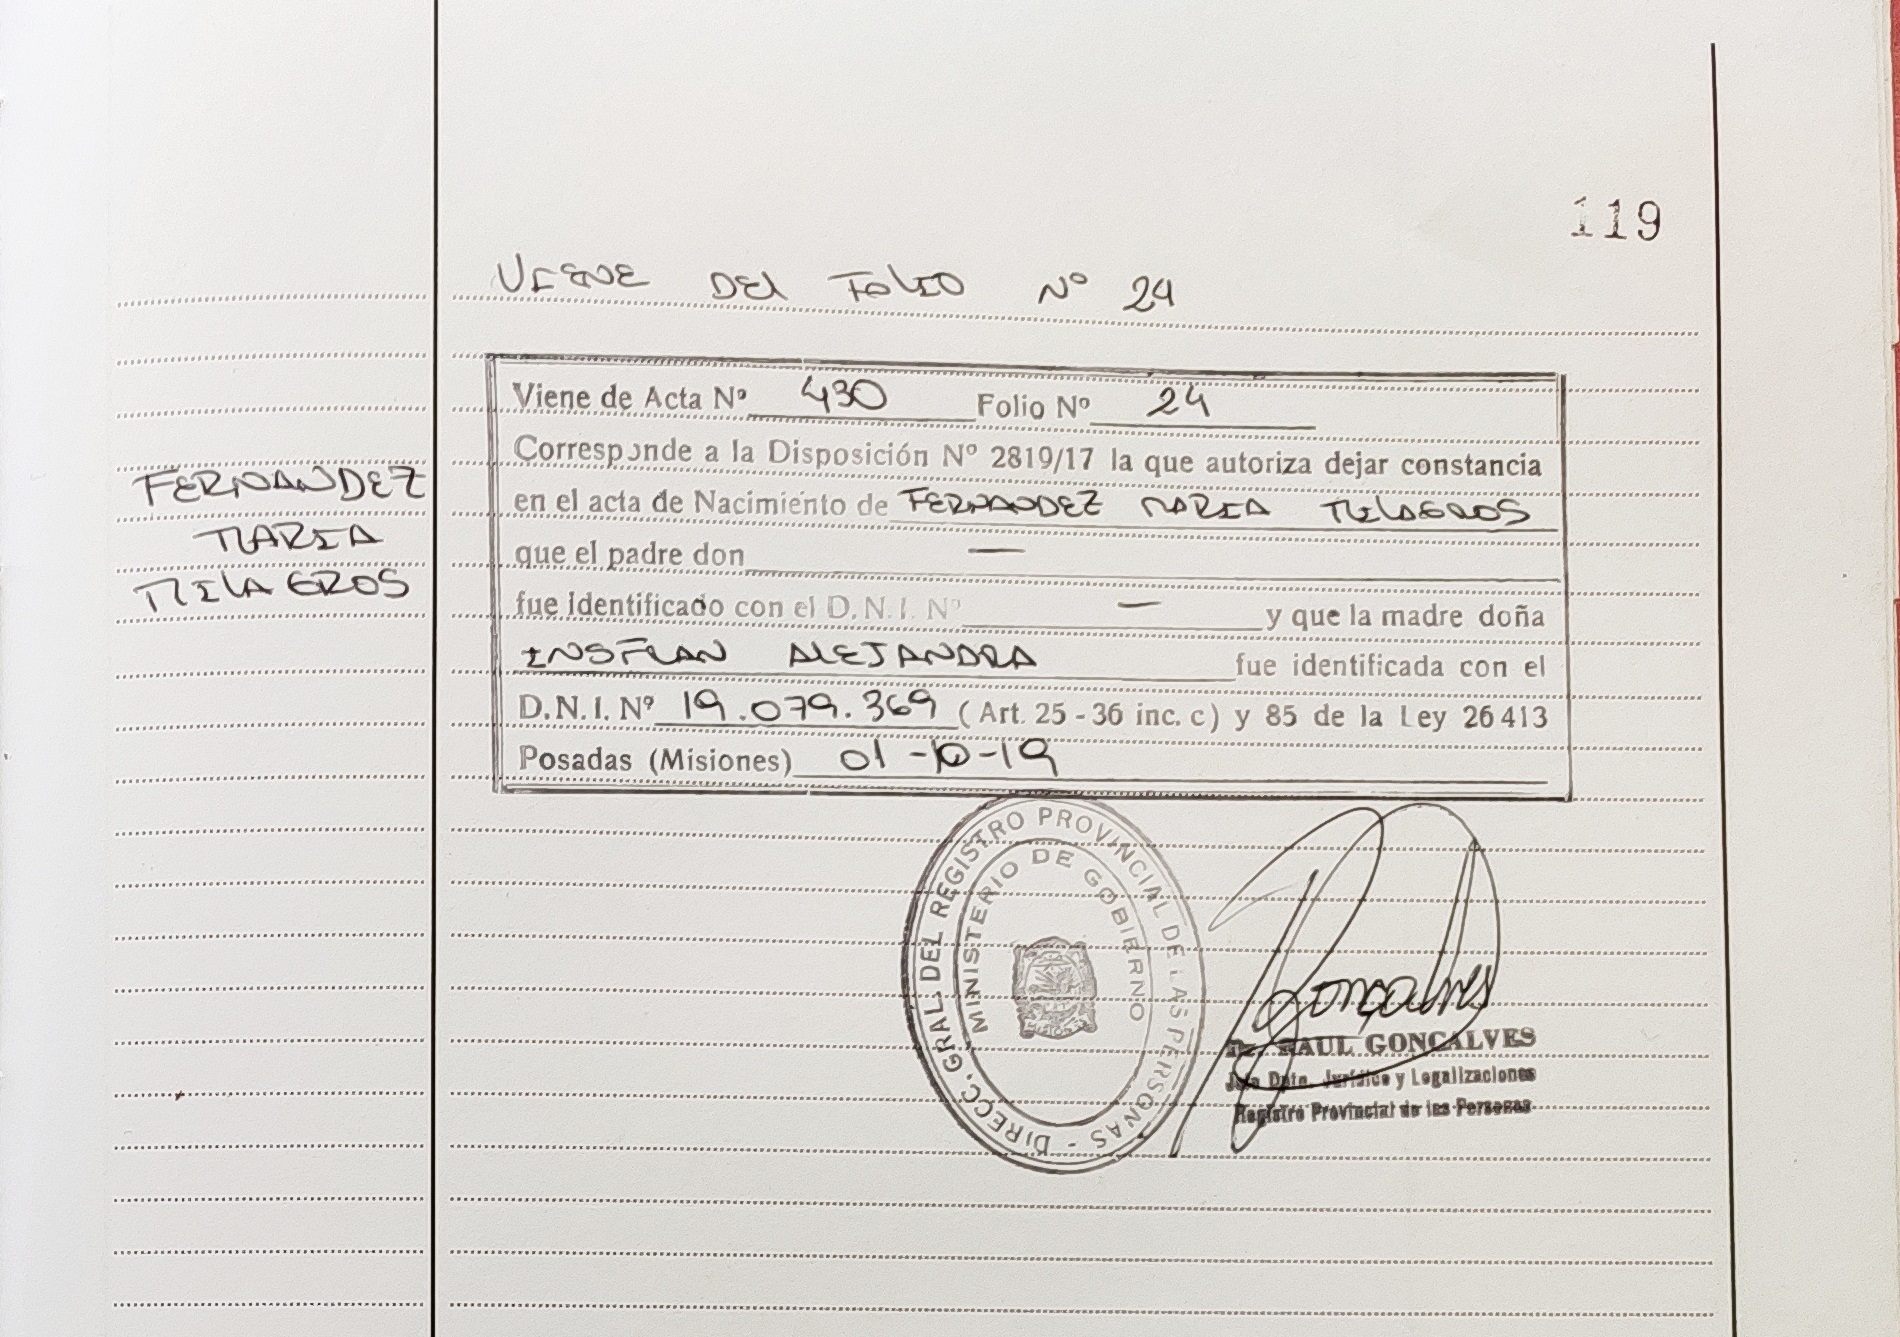 119
VIENE DEL FOLIO Nº 24
Viene de Acta Nº 430 Folio Nº 24
Corresponde a la Disposición Nº 2819/17 la que autoriza dejar constancia
en el acta de Nacimiento de FERNANDEZ MARIA MILAGROS
que el padre don —
fue identificado con el D.N.I. Nº — y que la madre doña
INSFRAN ALEJANDRA fue identificada con el
D.N.I. Nº 19.079.369 (Art. 25 - 36 inc. c) y 85 de la Ley 26413
Posadas (Misiones) 01-10-19
FERNANDEZ
MARIA
MILAGROS
DIRECC. GRAL. DEL REGISTRO PROVINCIAL DE LAS PERSONAS -
MINISTERIO DE GOBIERNO
MISIONES
Gonçalves
Dr. RAUL GONCALVES
Jefe Dpto. Jurídico y Legalizaciones
Registro Provincial de las Personas